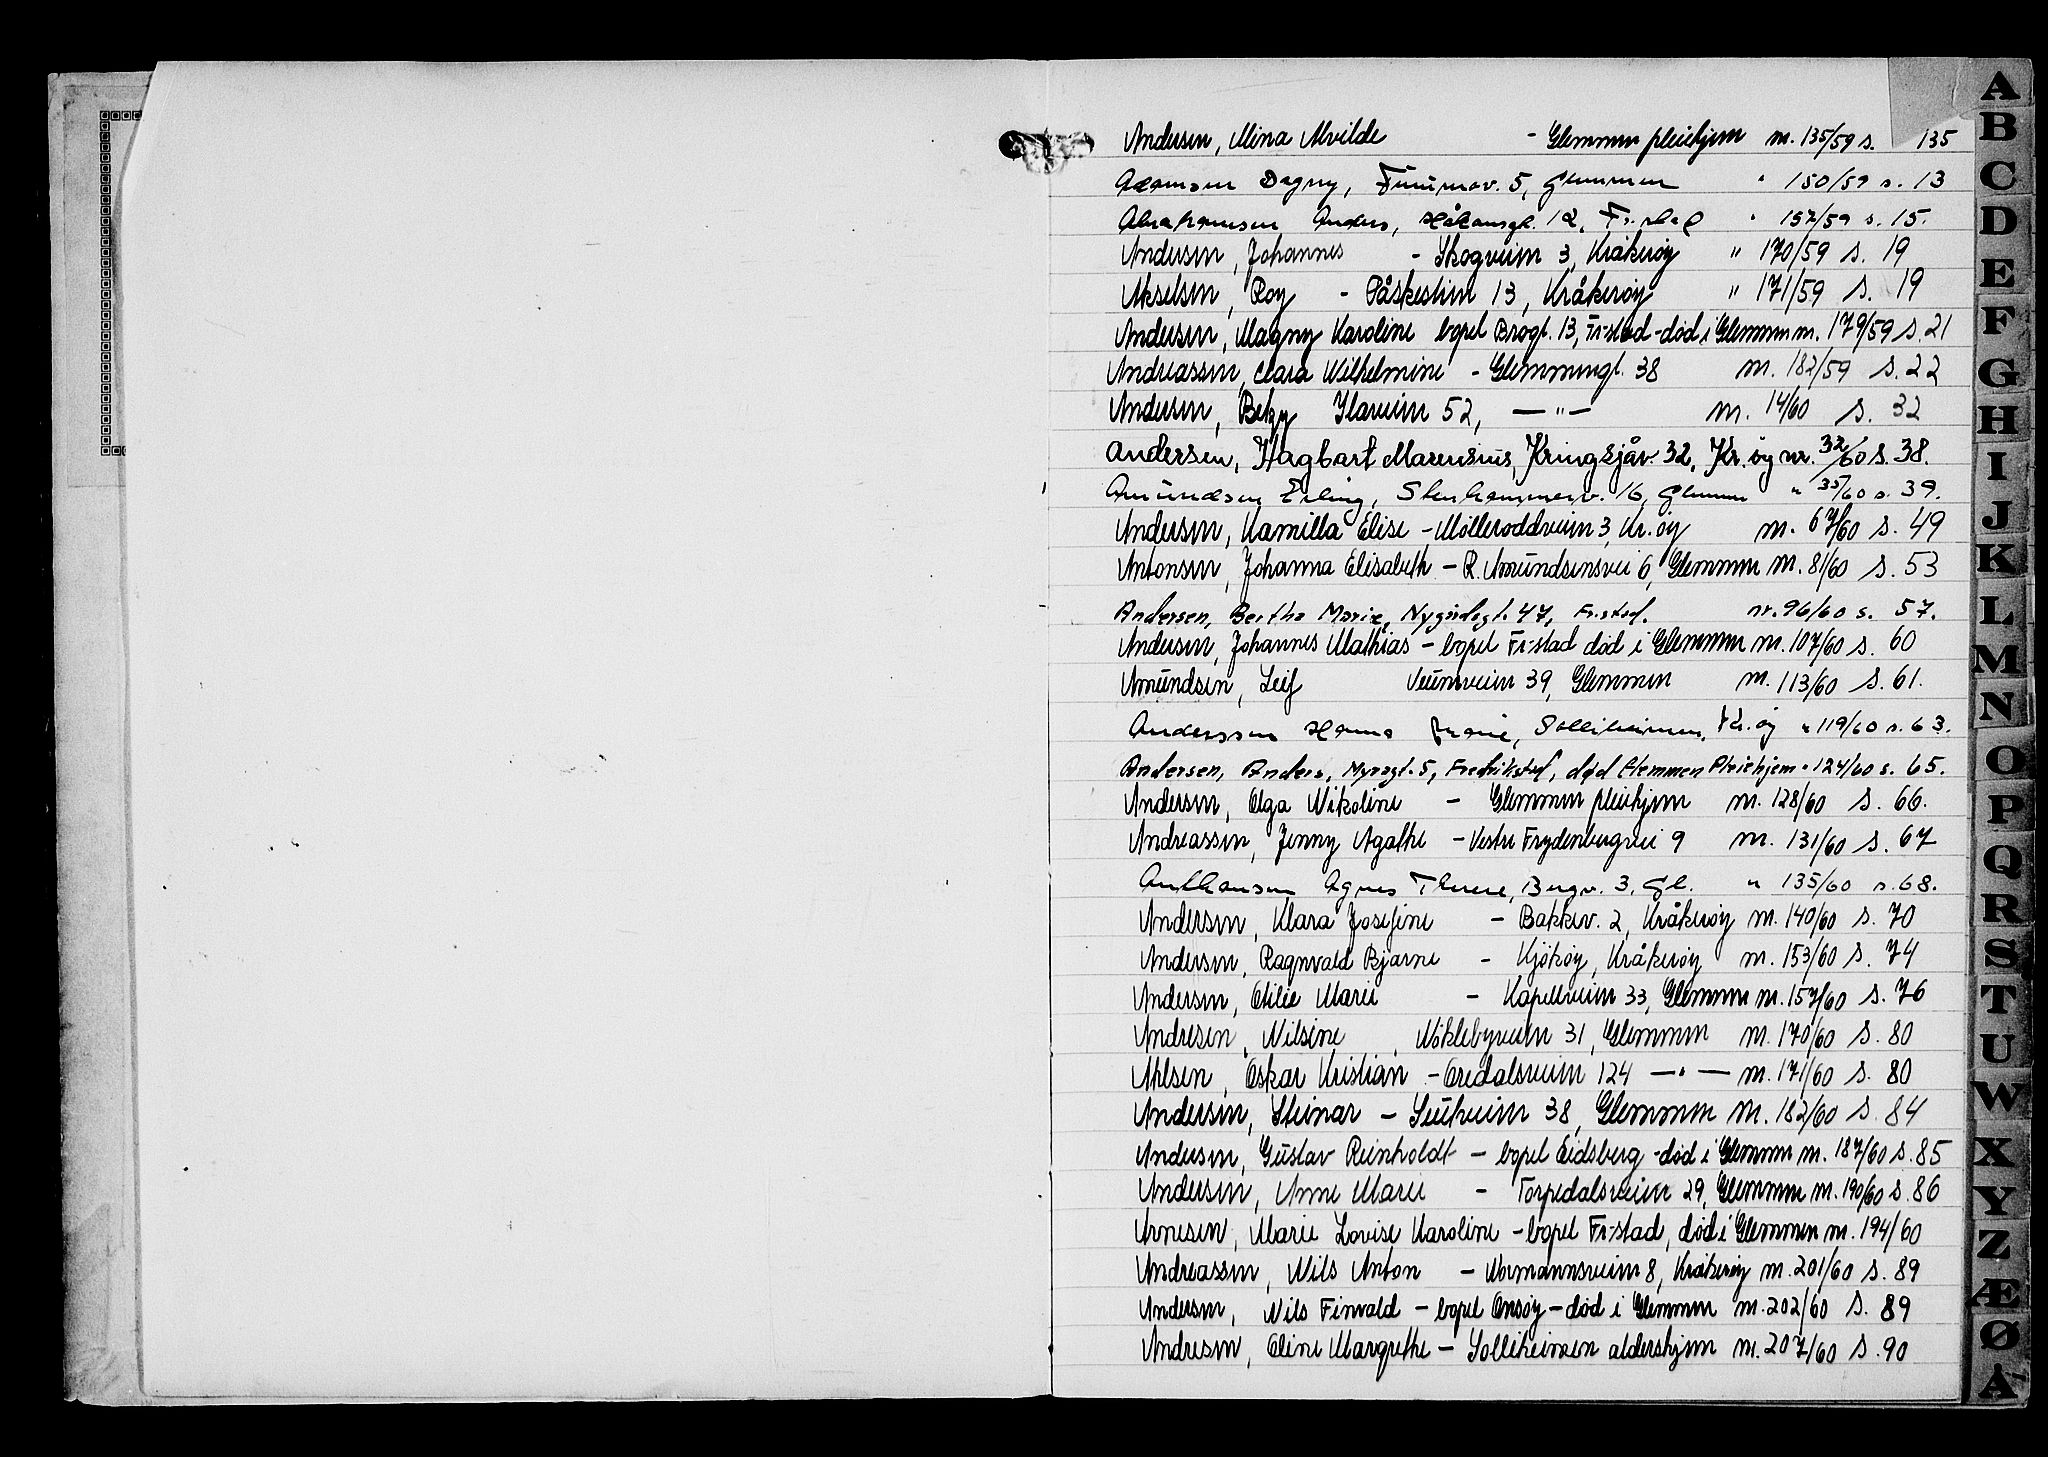 Andersen, Mina Alvilde - Glemmen pleiehjem nr. 135/59 s. 135
Adamsen Dagny, 5, Glemmen " 150/59 s. 13
Abrahamsen Anders, Håkonsgt. 12, Fr.stad " 157/59 s. 15.
Andersen, Johannes - Skogveien 3, Kråkerøy " 170/59 s. 19
Akselsen, Roy - Påskestien 13, Kråkerøy " 171/59 s. 19
Andersen, Magny Karoline bopel Brogt. 13, Fr-stad - død i Glemmen nr. 179/59 s. 21
Andreassen, Clara Wilhelmine - Glemmengt. 38 nr. 182/59 s. 22
Andersen, Betzy Ilaveien 52, — " — nr. 14/60 s. 32
Andersen, Hagbart Marensius, Kringsjåv. 32, Kr.øy nr. 32/60 s. 38.
Amundsen Erling, Stenhammerv. 16, Glemmen " 35/60 s. 39.
Andersen, Kamilla Elise - Mølleroddveien 3, Kr.øy nr. 67/60 s. 49
Antonsen, Johanna Elisabeth - R. Amundsensvei 6, Glemmen nr. 81/60 s. 53
Andersen, Bertha Marie, Nygårdsgt. 47, Fr.stad. nr. 96/60 s. 57.
Andersen, Johannes Mathias - bopel Fr-stad død i Glemmen nr. 107/60 s. 60
Amundsen, Leif Veumveien 39, Glemmen nr. 113/60 s. 61.
Anderssen Hanna Marie, Solliheimen, Kr.øy " 119/60 s. 63.
Andersen, Anders, Myragt. 5, Fredrikstad, død Glemmen Pleiehjem " 124/60 s. 65.
Andersen, Olga Nikoline - Glemmen pleiehjem nr. 128/60 s. 66.
Andreassen, Jenny Agathe - Vestre Frydenbergvei 9 nr. 131/60 s. 67
Agnes Therese, Bergv. 3, Gl. " 135/60 s. 68.
Andersen, Klara Josefine - Bakkev. 2, Kråkerøy nr. 140/60 s. 70
Andersen, Ragnvald Bjarne - Kjøkøy, Kråkerøy nr. 153/60 s. 74
Andersen, Otilie Marie - Kapellveien 33, Glemmen nr. 157/60 s. 76
Andresen, Nilsine, Nøklebyveien 31, Glemmen nr. 170/60 s. 80
Ahlsen, Oskar Kristian - Oredalsveien 124 — " — nr. 171/60 s. 80
Andersen, Steinar - Leieveien 38, Glemmen nr. 182/60 s. 84
Andersen, Gustav Reinholdt - bopel Eidsberg - død i Glemmen nr. 187/60 s. 85
Andersen, Anne Marie - Torpedalsveien 29, Glemmen nr. 190/60 s. 86
Arnesen, Marie Lovise Karoline - bopel Fr-stad, død i Glemmen nr. 194/60
Andreassen, Nils Anton - Normannsveien 8, Kråkerøy nr. 201/60 s. 89
Andersen, Nils Finvald - bopel Onsøy - død i Glemmen nr. 202/60 s. 89
Andresen, Oline Margrethe - Solliheimen aldershjem nr. 207/60 s. 90
A
B
C
D
E
F
G
H
I
J
K
L
M
N
O
P
Q
R
S
T
U
W
X
Y
Z
Æ
Ø
Å